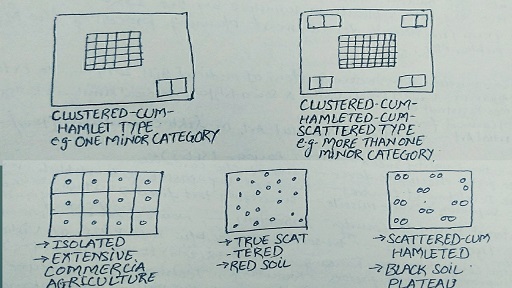 CLUSTERED-CUM-
HAMLET TYPE
e.g- ONE MINOR CATEGORY
CLUSTERED-CUM-
HAMLETED-CUM-
SCATTERED TYPE
e.g- MORE THAN ONE
MINOR CATEGORY
→ ISOLATED
→ EXTENSIVE
COMMERCIA
AGRICULTURE
→ TRUE SCAT
-TERED
→ RED SOIL
→ SCATTERED-CUM
HAMLETED
→ BLACK SOIL
PLATEAU